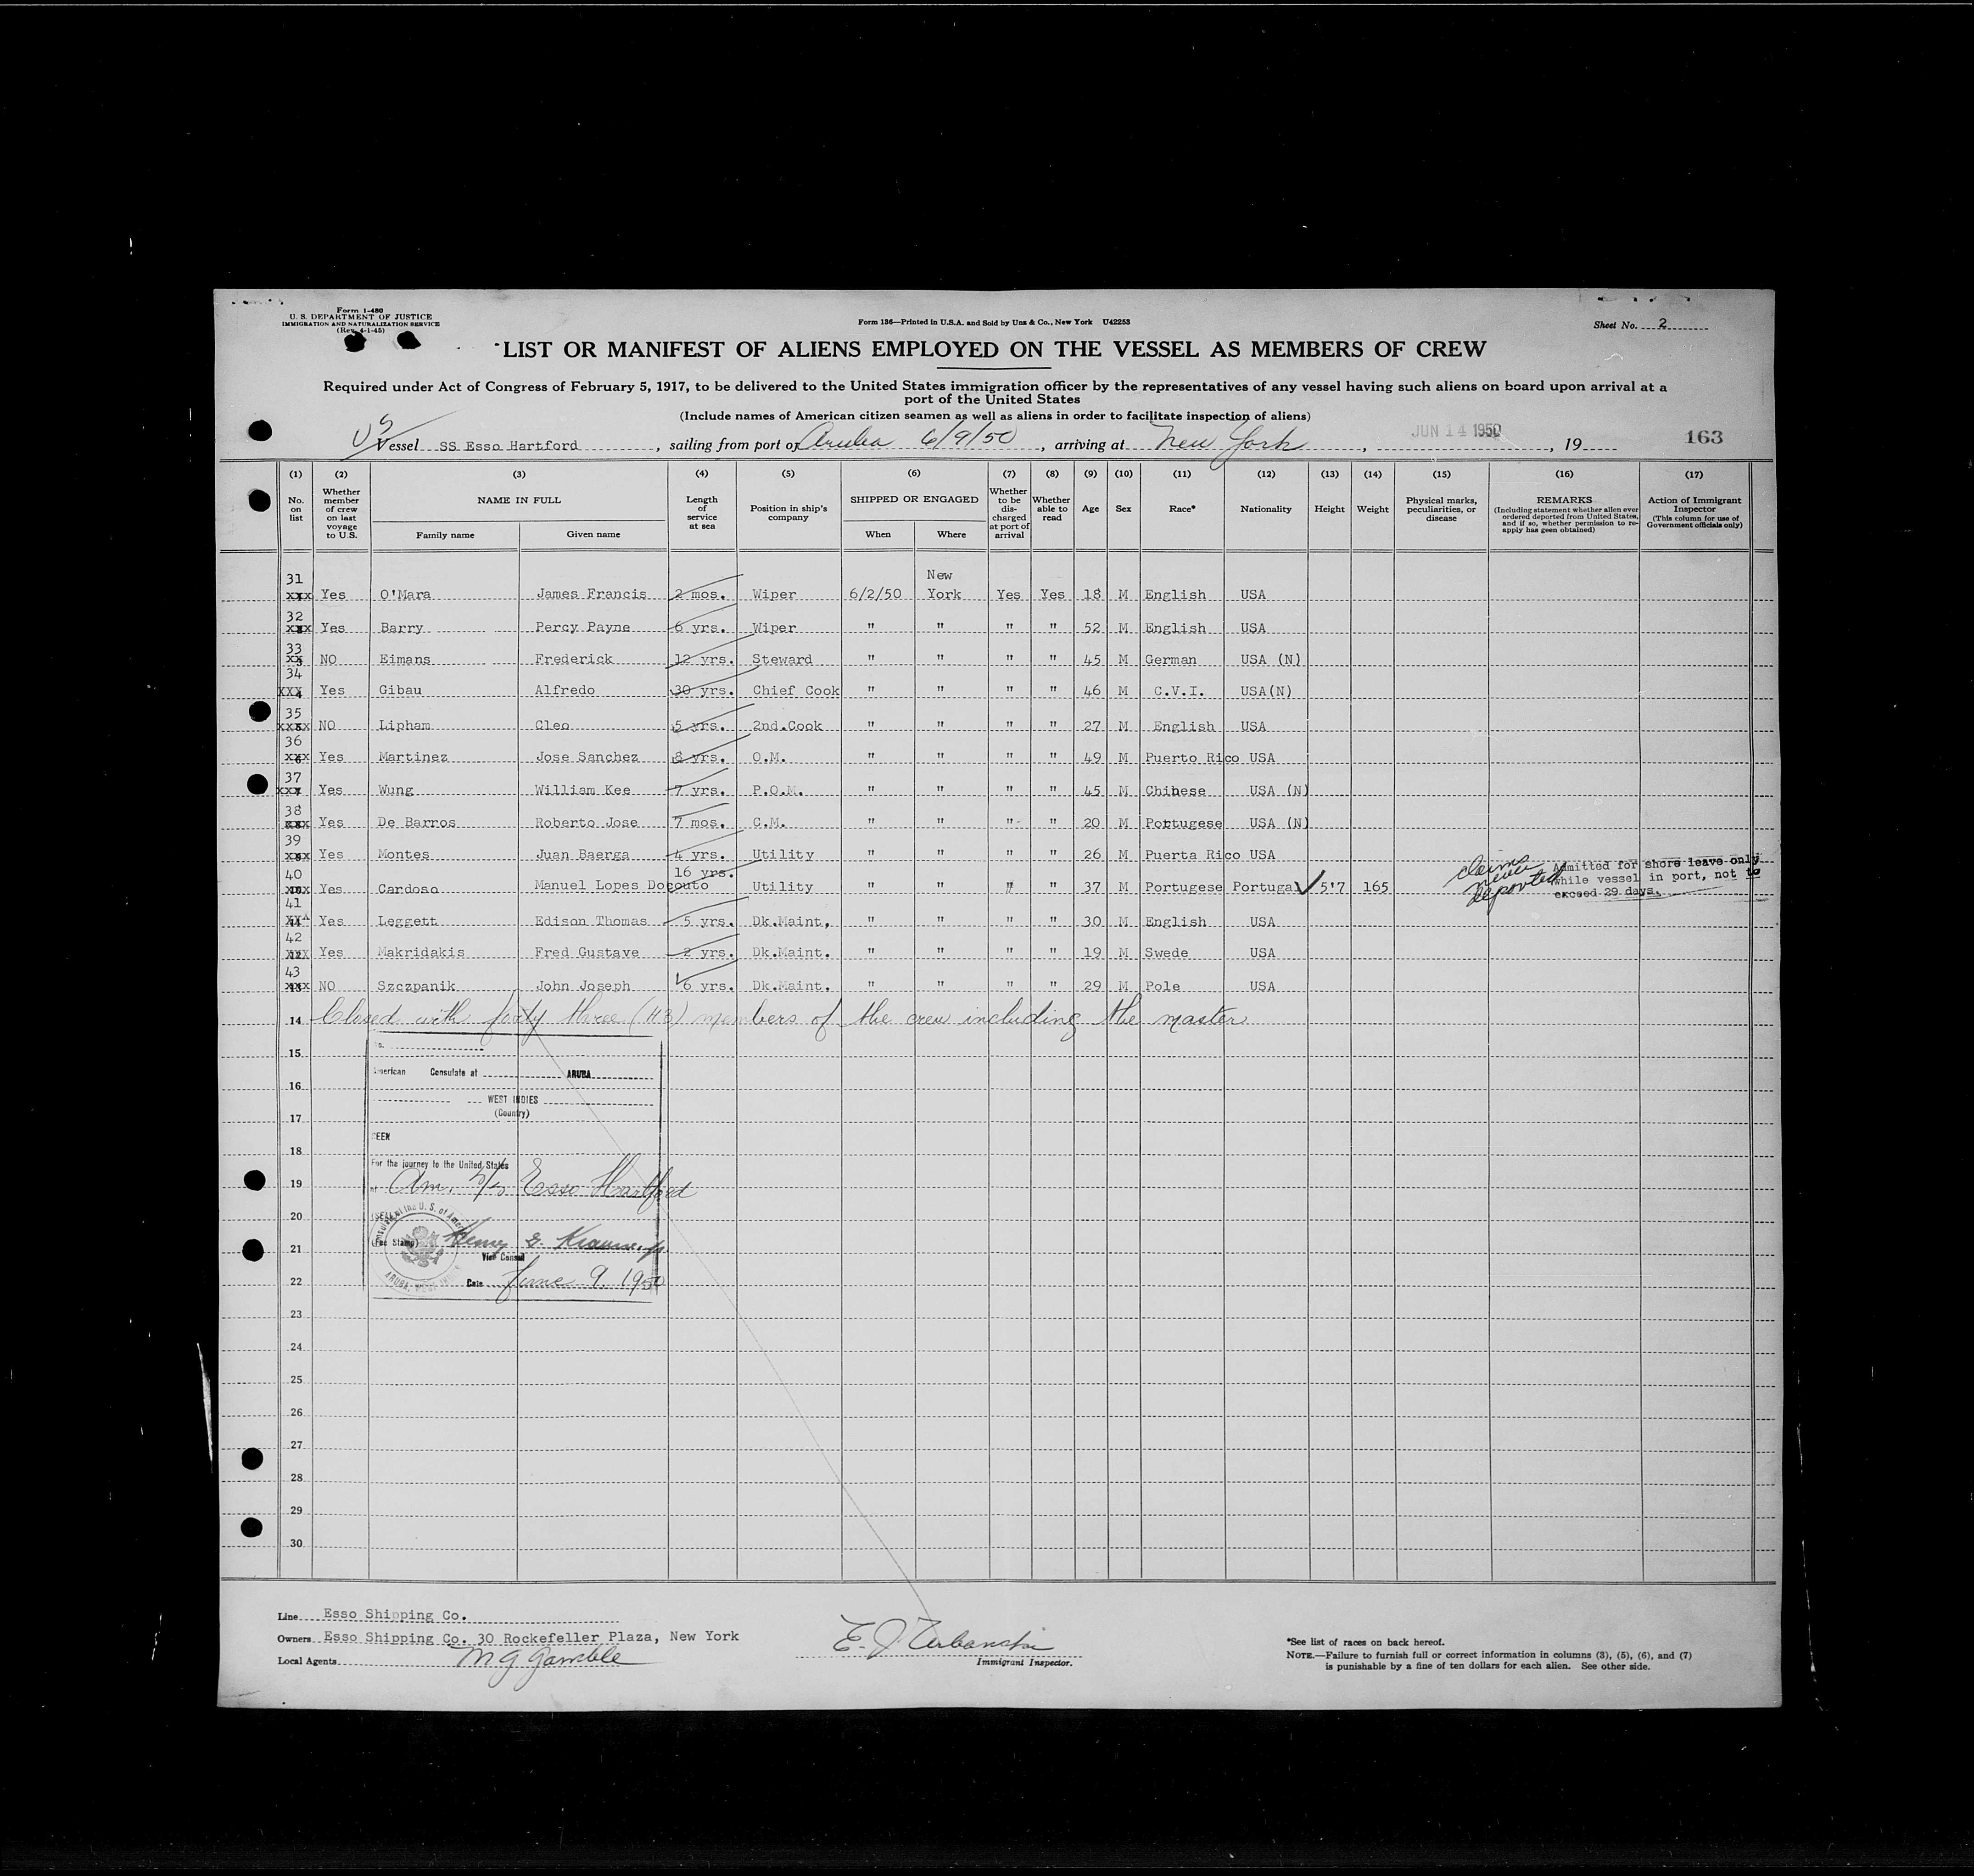 Form 1-480
U. S. DEPARTMENT OF JUSTICE
IMMIGRATION AND NATURALIZATION SERVICE
(Rev. 4-1-45)
Form 136—Printed in U.S.A. and Sold by Unz & Co., New York U42253
Sheet No. 2
LIST OR MANIFEST OF ALIENS EMPLOYED ON THE VESSEL AS MEMBERS OF CREW
Required under Act of Congress of February 5, 1917, to be delivered to the United States immigration officer by the representatives of any vessel having such aliens on board upon arrival at a
port of the United States
(Include names of American citizen seamen as well as aliens in order to facilitate inspection of aliens)
US Vessel SS Esso Hartford, sailing from port of Aruba 6/9/50, arriving at New York, JUN 14 1950, 19 163
(1) (2) (3) (4) (5) (6) (7) (8) (9) (10) (11) (12) (13) (14) (15) (16) (17)
No. on list
Whether member of crew on last voyage to U.S.
NAME IN FULL
Family name Given name
Length of service at sea
Position in ship's company
SHIPPED OR ENGAGED
When Where
Whether to be dis-charged at port of arrival
Whether able to read
Age
Sex
Race*
Nationality
Height
Weight
Physical marks, peculiarities, or disease
REMARKS
(Including statement whether alien ever ordered deported from United States, and if so, whether permission to re-apply has geen obtained)
Action of Immigrant Inspector
(This column for use of Government officials only)
31 Yes O'Mara James Francis 2 mos. Wiper 6/2/50 New York Yes Yes 18 M English USA
32 Yes Barry Percy Payne 6 yrs. Wiper " " " " 52 M English USA
33 NO Eimans Frederick 12 yrs. Steward " " " " 45 M German USA (N)
34 Yes Gibau Alfredo 30 yrs. Chief Cook " " " " 46 M C.V.I. USA(N)
35 NO Lipham Cleo 5 yrs. 2nd.Cook " " " " 27 M English USA
36 Yes Martinez Jose Sanchez 8 yrs. O.M. " " " " 49 M Puerto Rico USA
37 Yes Wung William Kee 7 yrs. P.O.M. " " " " 45 M Chinese USA (N)
38 Yes De Barros Roberto Jose 7 mos. C.M. " " " " 20 M Portugese USA (N)
39 Yes Montes Juan Baerga 4 yrs. Utility " " " " 26 M Puerta Rico USA
40 Yes Cardoso Manuel Lopes Docouto 16 yrs. Utility " " " " 37 M Portugese Portugal 5'7 165 claims never deported Admitted for shore leave only while vessel in port, not to exceed 29 days.
41 Yes Leggett Edison Thomas 5 yrs. Dk.Maint. " " " " 30 M English USA
42 Yes Makridakis Fred Gustave 2 yrs. Dk.Maint. " " " " 19 M Swede USA
43 NO Szczpanik John Joseph 6 yrs. Dk.Maint. " " " " 29 M Pole USA
14 Closed with forty three (43) members of the crew including the master
15
No.
American Consulate at ARUBA
16
WEST INDIES
(Country)
17
SEEN
18
For the journey to the United States
19
Am. S/S Esso Hartford
20
(Fee Stamp)
21
Vice Consul
22
Date June 9, 1950
23
24
25
26
27
28
29
30
Line Esso Shipping Co.
Owners Esso Shipping Co. 30 Rockefeller Plaza, New York
Local Agents M G Gamble
Immigrant Inspector.
*See list of races on back hereof.
NOTE.—Failure to furnish full or correct information in columns (3), (5), (6), and (7)
is punishable by a fine of ten dollars for each alien. See other side.